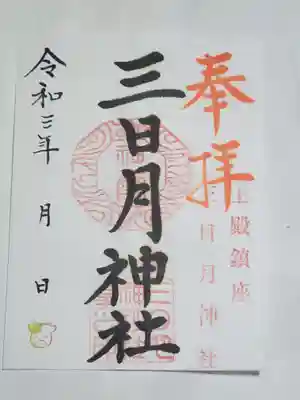 奉拝
土殿鎮座
三日月神社
三日月神社
令和三年 月 日